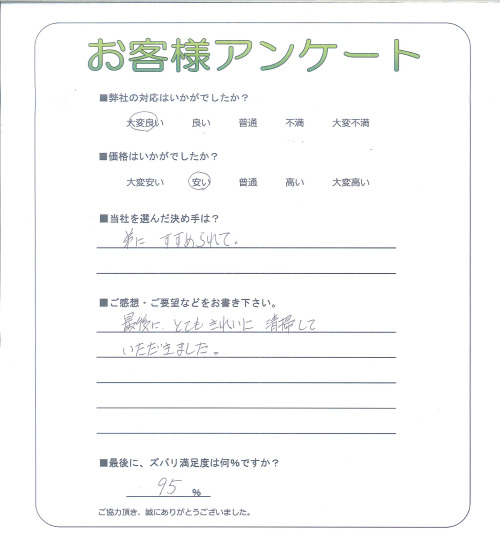 お客様アンケート
■弊社の対応はいかがでしたか?
大変良い 良い 普通 不満 大変不満
■価格はいかがでしたか?
大変安い 安い 普通 高い 大変高い
■当社を選んだ決め手は?
弟に すすめられて。
■ご感想・ご要望などをお書き下さい。
最後に、とても きれいに 清掃して
いただきました。
■最後に、ズバリ満足度は何%ですか?
95 %
ご協力頂き、誠にありがとうございました。